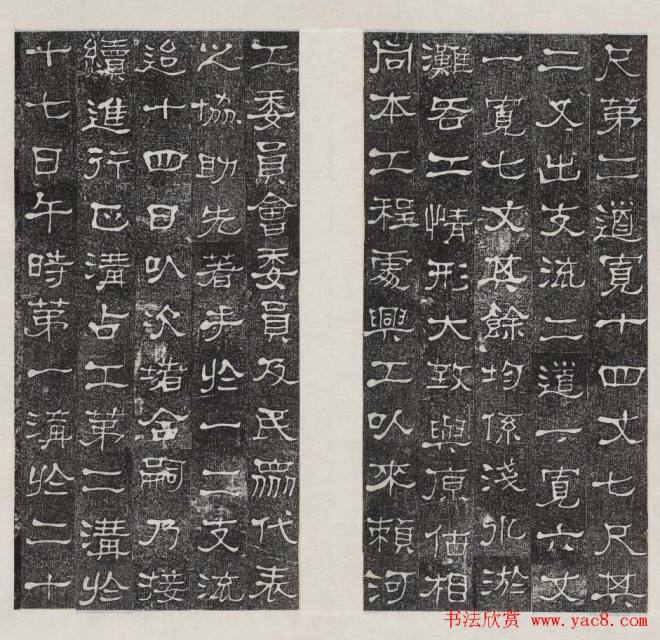 尺第二道寬十四丈七尺其
二丈出支流二道一寬六丈
一寬七丈其餘均係淺水淤
灘工情形大致與原相
同本工程處興工以來賴河
工委員會委員及民衆代表
之協助先著手於一二支流
迨十四日以次堵合嗣乃接
續進行正溝占工第二溝於
十七日午時第一溝於二十
书法欣赏 www.yac8.com